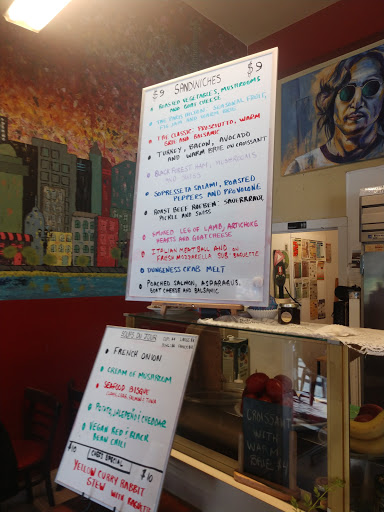 $9 SANDWICHES $9
ROASTED VEGETABLES, MUSHROOMS
AND GOAT CHEESE
THE PARIS HILTON: SEASONAL FRUIT,
FIG JAM AND WARM BRIE
THE CLASSIC: PROSCIUTTO, WARM
BRIE AND BALSAMIC
TURKEY, BACON, AVOCADO
AND WARM BRIE ON CROISSANT
BLACK FOREST HAM, MUSHROOMS
AND SWISS
SOPRESSETA SALAMI, ROASTED
PEPPERS AND PROVOLONE
ROAST BEEF REUBEN: SAUERKRAUT,
PICKLE AND SWISS
SMOKED LEG OF LAMB, ARTICHOKE
HEARTS AND GOAT CHEESE
ITALIAN MEATBALL AND ON
FRESH MOZZARELLA SUB BAGUETTE
DUNGENESS CRAB MELT
POACHED SALMON, ASPARAGUS,
GOAT CHEESE AND BALSAMIC
FRENCH ONION
CREAM OF MUSHROOM
SEAFOOD BISQUE
POTATO, JALAPEÑO, CHEDDAR
VEGAN RED & BLACK
BEAN CHILI
$10 CHEF'S SPECIAL $10
YELLOW CURRY RABBIT
STEW WITH BAGUETTE
CROISSANT
WITH
WARM
BRIE $4